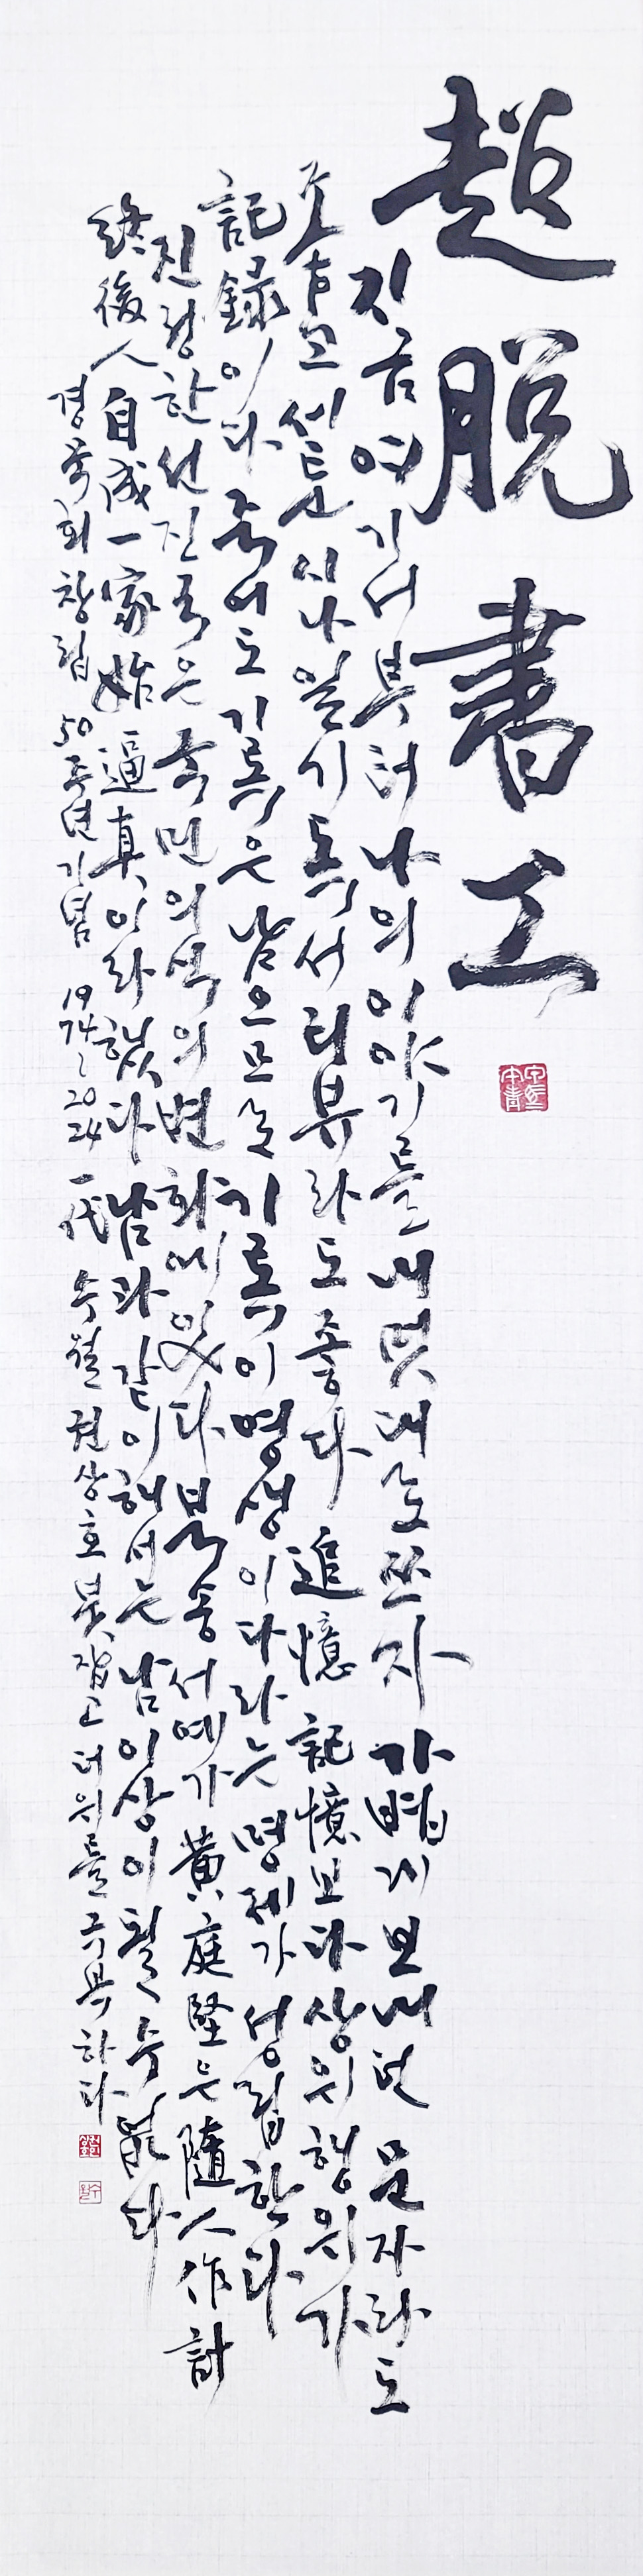 超脫書工
지금 여기서부터 나의 이야기를 내 멋대로 쓰자 가볍게 보내던 문자라도
좋고 세둔 시나 일기 독서 리뷰라도 좋다 追憶 記憶보다 상위 행위가
記錄이다 죽어도 기록은 남으므로 기록이 영생이다라는 명제가 성립한다
진정한 선진국은 국민의식의 변화에 있다 북송 서예가 黃庭堅은 隨人作計
終後人 自成一家始逼真이라 했다 남과 같이 해서는 남 이상이 될 수 없다
경묵회 창립 50주년 기념 1974~2024 一代 수월 권상호 붓 잡고 더위를 극복하다